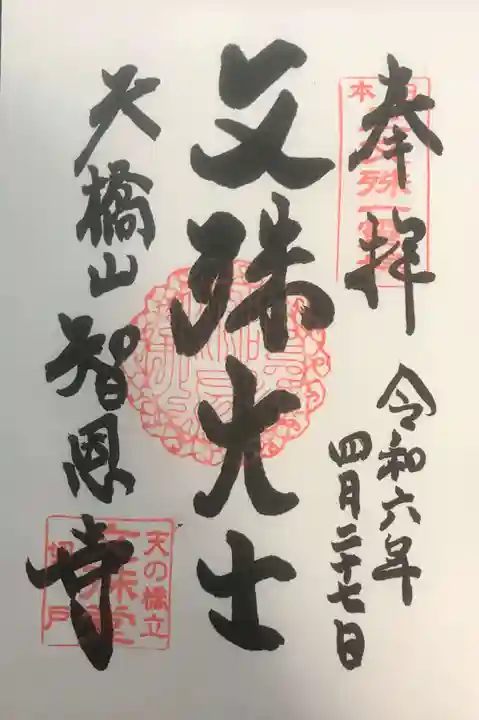 奉拝
令和六年
四月二十七日
文殊大士
天橋山智恩寺
天の橋立
文殊堂
切戸